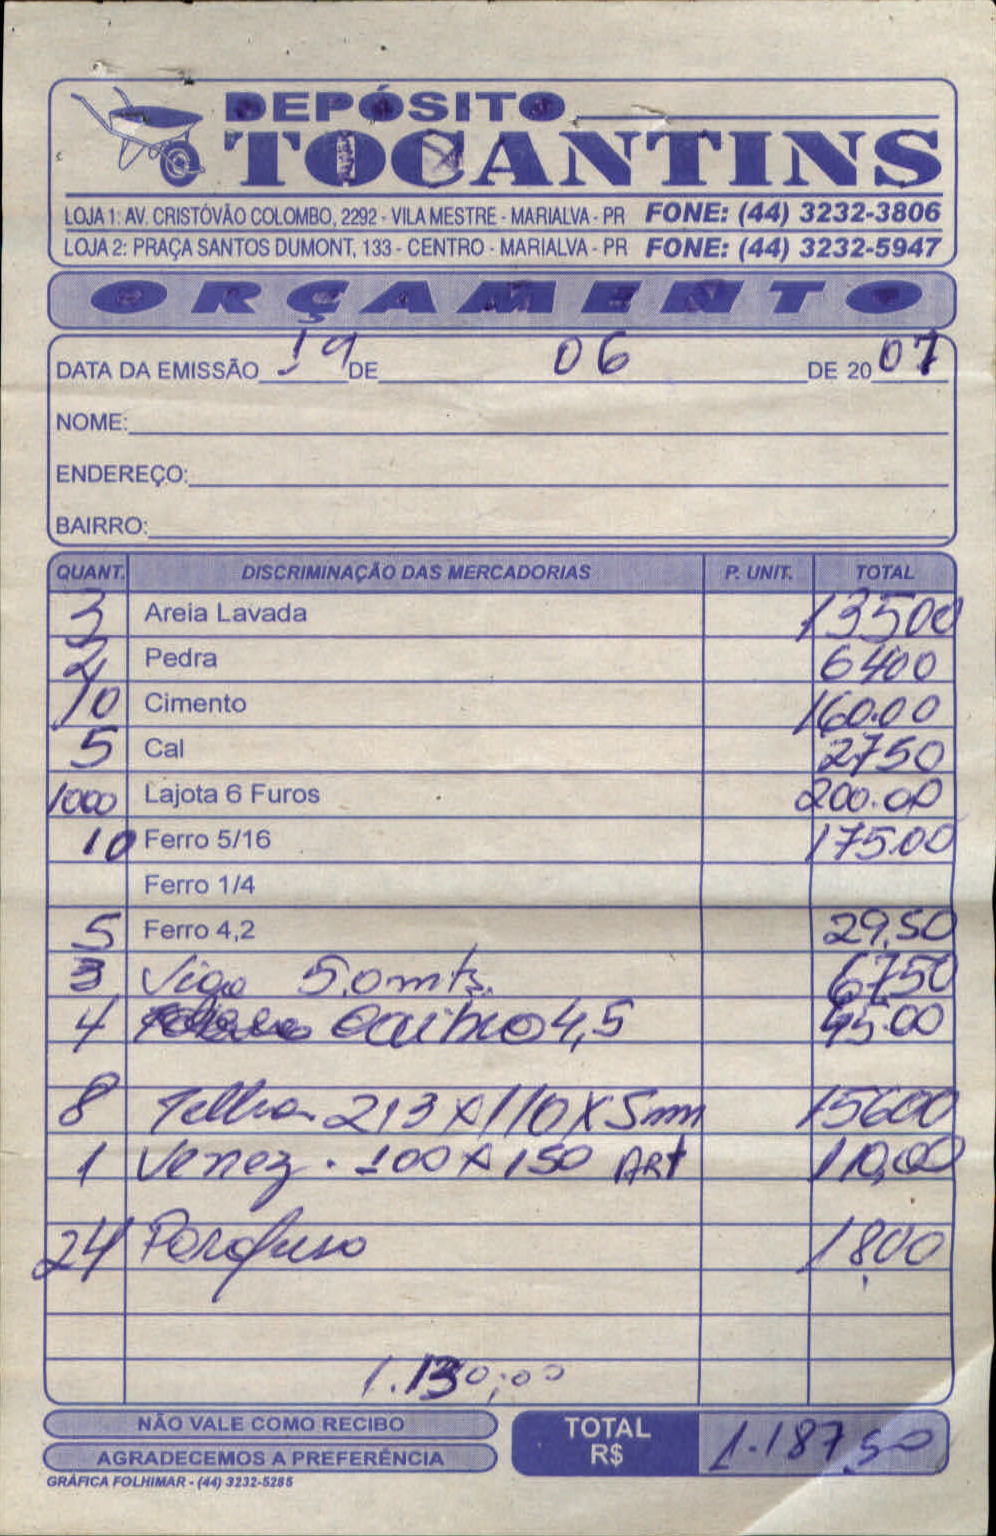 DEPÓSITO
TOCANTINS
LOJA 1: AV. CRISTÓVÃO COLOMBO, 2292 - VILA MESTRE - MARIALVA - PR FONE: (44) 3232-3806
LOJA 2: PRAÇA SANTOS DUMONT, 133 - CENTRO - MARIALVA - PR FONE: (44) 3232-5947
ORÇAMENTO
DATA DA EMISSÃO 19 DE 06 DE 2007
NOME:
ENDEREÇO:
BAIRRO:
QUANT. DISCRIMINAÇÃO DAS MERCADORIAS P. UNIT. TOTAL
3 Areia Lavada 13500
2 Pedra 6400
10 Cimento 160.00
5 Cal 2750
1000 Lajota 6 Furos 200.00
10 Ferro 5/16 175.00
Ferro 1/4
5 Ferro 4,2 29,50
3 Viga 5,0 mts. 6750
4 Caibro 4,5 45.00
8 Telha 213 X 110 X 5mm 15600
1 Venez. 100 X 150 ART 110,00
24 Parafuso 1800
1.130,00
NÃO VALE COMO RECIBO
AGRADECEMOS A PREFERÊNCIA
TOTAL R$ 1.187,50
GRÁFICA FOLHIMAR - (44) 3232-5285